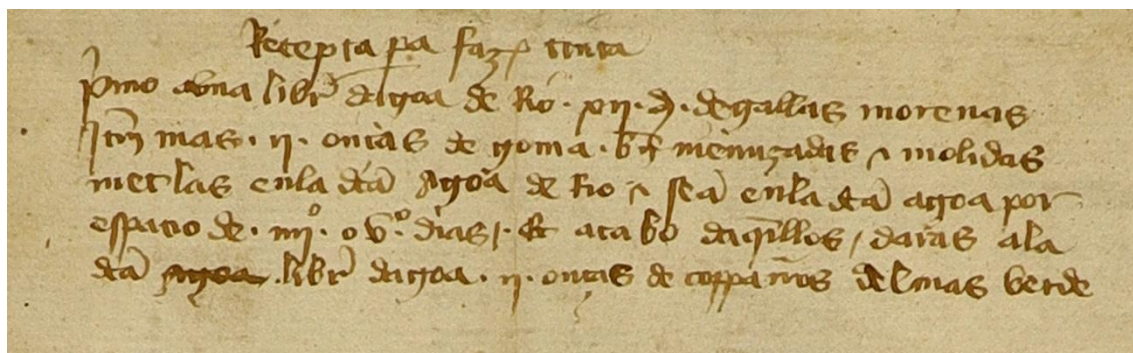 Recepta pa faz tinta
pmo avna libr dagoa de Rio · xii · d · degallas morenas
Itm mas · ii · onças de goma · bn menuzadas 𝑒 molidas
metlas enla dcā Agoa de Rio 𝑒 seā enla dcā agoa por
espacio de · iiiiº · o vº · dias / · Et acabo daqllos / daras ala
dcā libr dagoa · ii · onças de copparos delmas verde